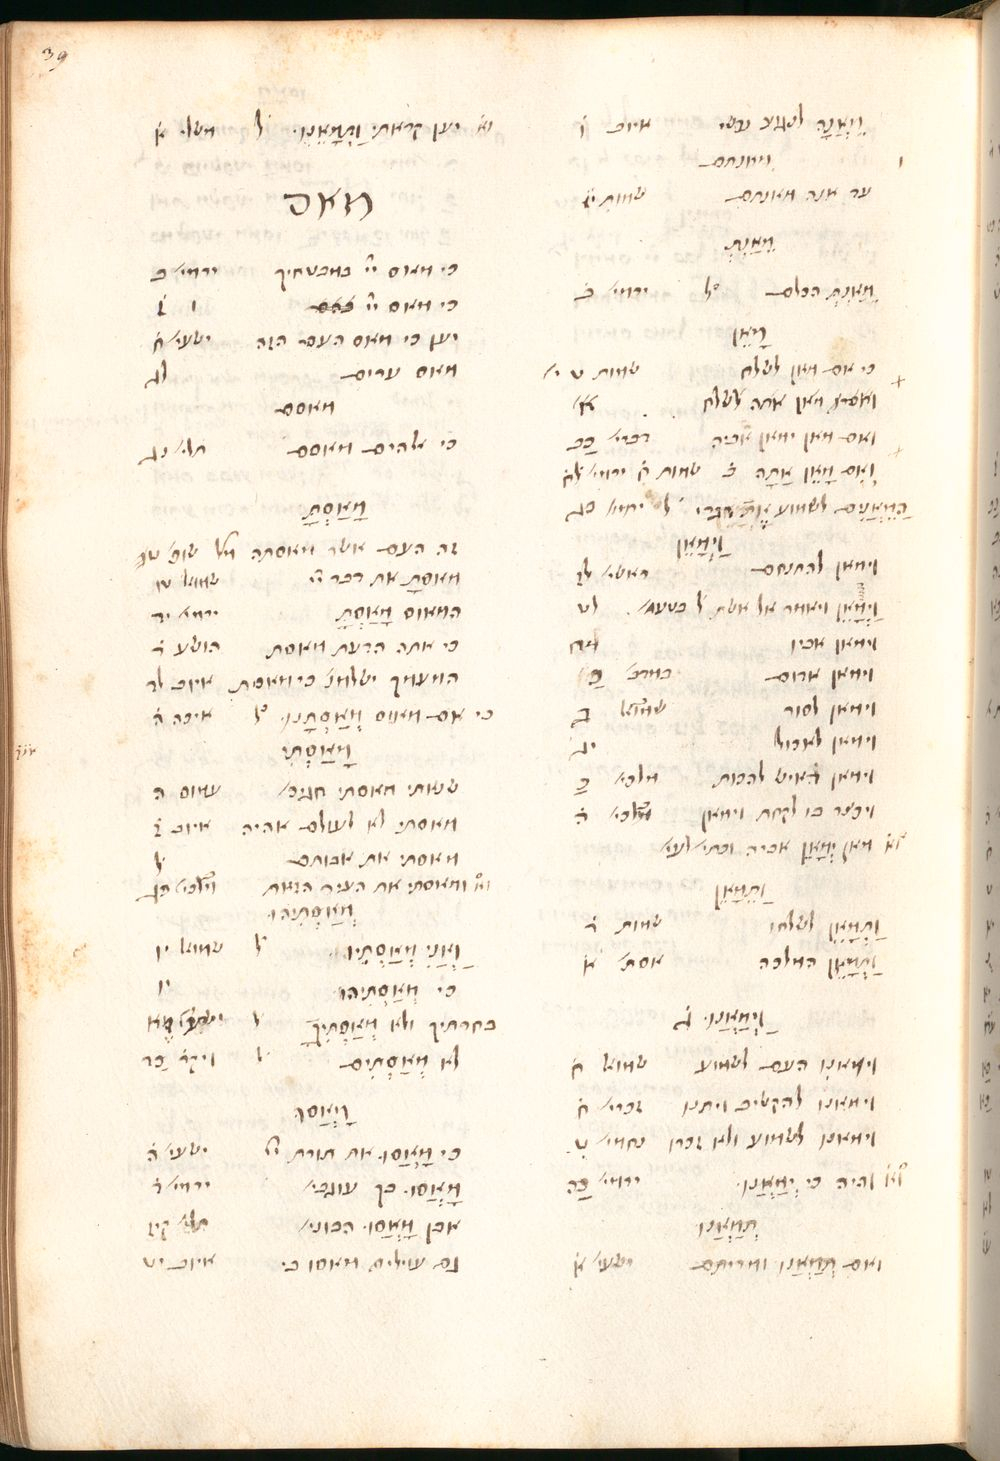 39
מֵאֲנָה לנגוע נפשי איוב ו
מאנתם
עד אנה מאנתם שמות יו
מֵאַנְתְּ
מֵאַנְתְּ הכלם ל ירמי׳ ג
מָאֵן
כי אם מאן לשלח שמות ט י׳
מאן אתה לשלח
ואם מאן ימאן אביה דברי׳ כב
וְאִם מָאֵן אַתָּה ב שמות ח ירמי׳ לח
הַמֵּאֲנִים לשמוע אֶת דברי ל ירמי׳ יג
וַיְמָאֵן
וימאן להתנחם בראשי׳ לז
וַיְמָאֵן ויאמר אל אשת ל בטעמא לט
וימאן אביו מח
וימאן אדום במדבר כ
וימאן לסור שמואל ב
וימאן לאכול יג
וימאן האיש להכות מלכי׳ כ
ויפצר בו לקחת וימאן מלכי׳ ה
מאן יְמָאֵן אביה
וַתְּמָאֵן
וַתְּמָאֵן לשלחו שמות ד
וַתְּמָאֵן המלכה אסת׳ א
וַיְמָאֲנוּ ג
וימאנו העם לשמוע שמואל ח
וימאנו להקשיב ויתנו זכרי׳ ח
וימאנו לשמוע ולא זכרו נחמי׳ ט
והיה כי יְמָאֲנוּ ירמי׳ כה
תְּמָאֲנוּ
ואם תְּמָאֲנוּ ומריתם ישעי׳ א
יען קראתי וַתְּמָאֵנוּ ל משלי א
מאס
כי מאס יי במבטחיך ירמי׳ ב
כי מאס יי ו
יען כי מאס העם הזה ישעי׳ ח
מאס ערים לג
מאסם
כי אלהים מאסם תלי׳ נג
מָאַסְתָּ
זה העם אשר מאסתה ל שופ׳ ט
מאסת את דבר יי שמואל טו
המאוס מָאַסְתָּ ירמי׳ יד
כי אתה הדעת מאסת הושע ד
המעמך ישלמנה כי מאסת איוב לד
כי אם מאוס מְאַסְתָּנוּ ל איכה ה
מָאַסְתִּי
שנאתי מאסתי חגיכ׳ עמוס ה
מאסתי לא לעולם אחיה איוב ז
מאסתי את אבותם ל
ומאסתי את העיר הזאת מלכי׳ כג
מְאַסְתִּיהוּ
וַאֲנִי מְאַסְתִּיו ל שמואל יו
כי מְאַסְתִּיהוּ יו
בחרתיך ולא מְאַסְתִּיךָ ל ישעי׳ מא
לא מְאַסְתִּים ל ויקר׳ כו
מָאֲסוּ
כי מָאֲסוּ את תורת יי ישעי׳ ה
מָאֲסוּ בך עוגבי׳ ירמי׳ ד
אבן מָאֲסוּ הבוני׳ תלי׳ קיח
גם עוילים מאסו בי איוב יט